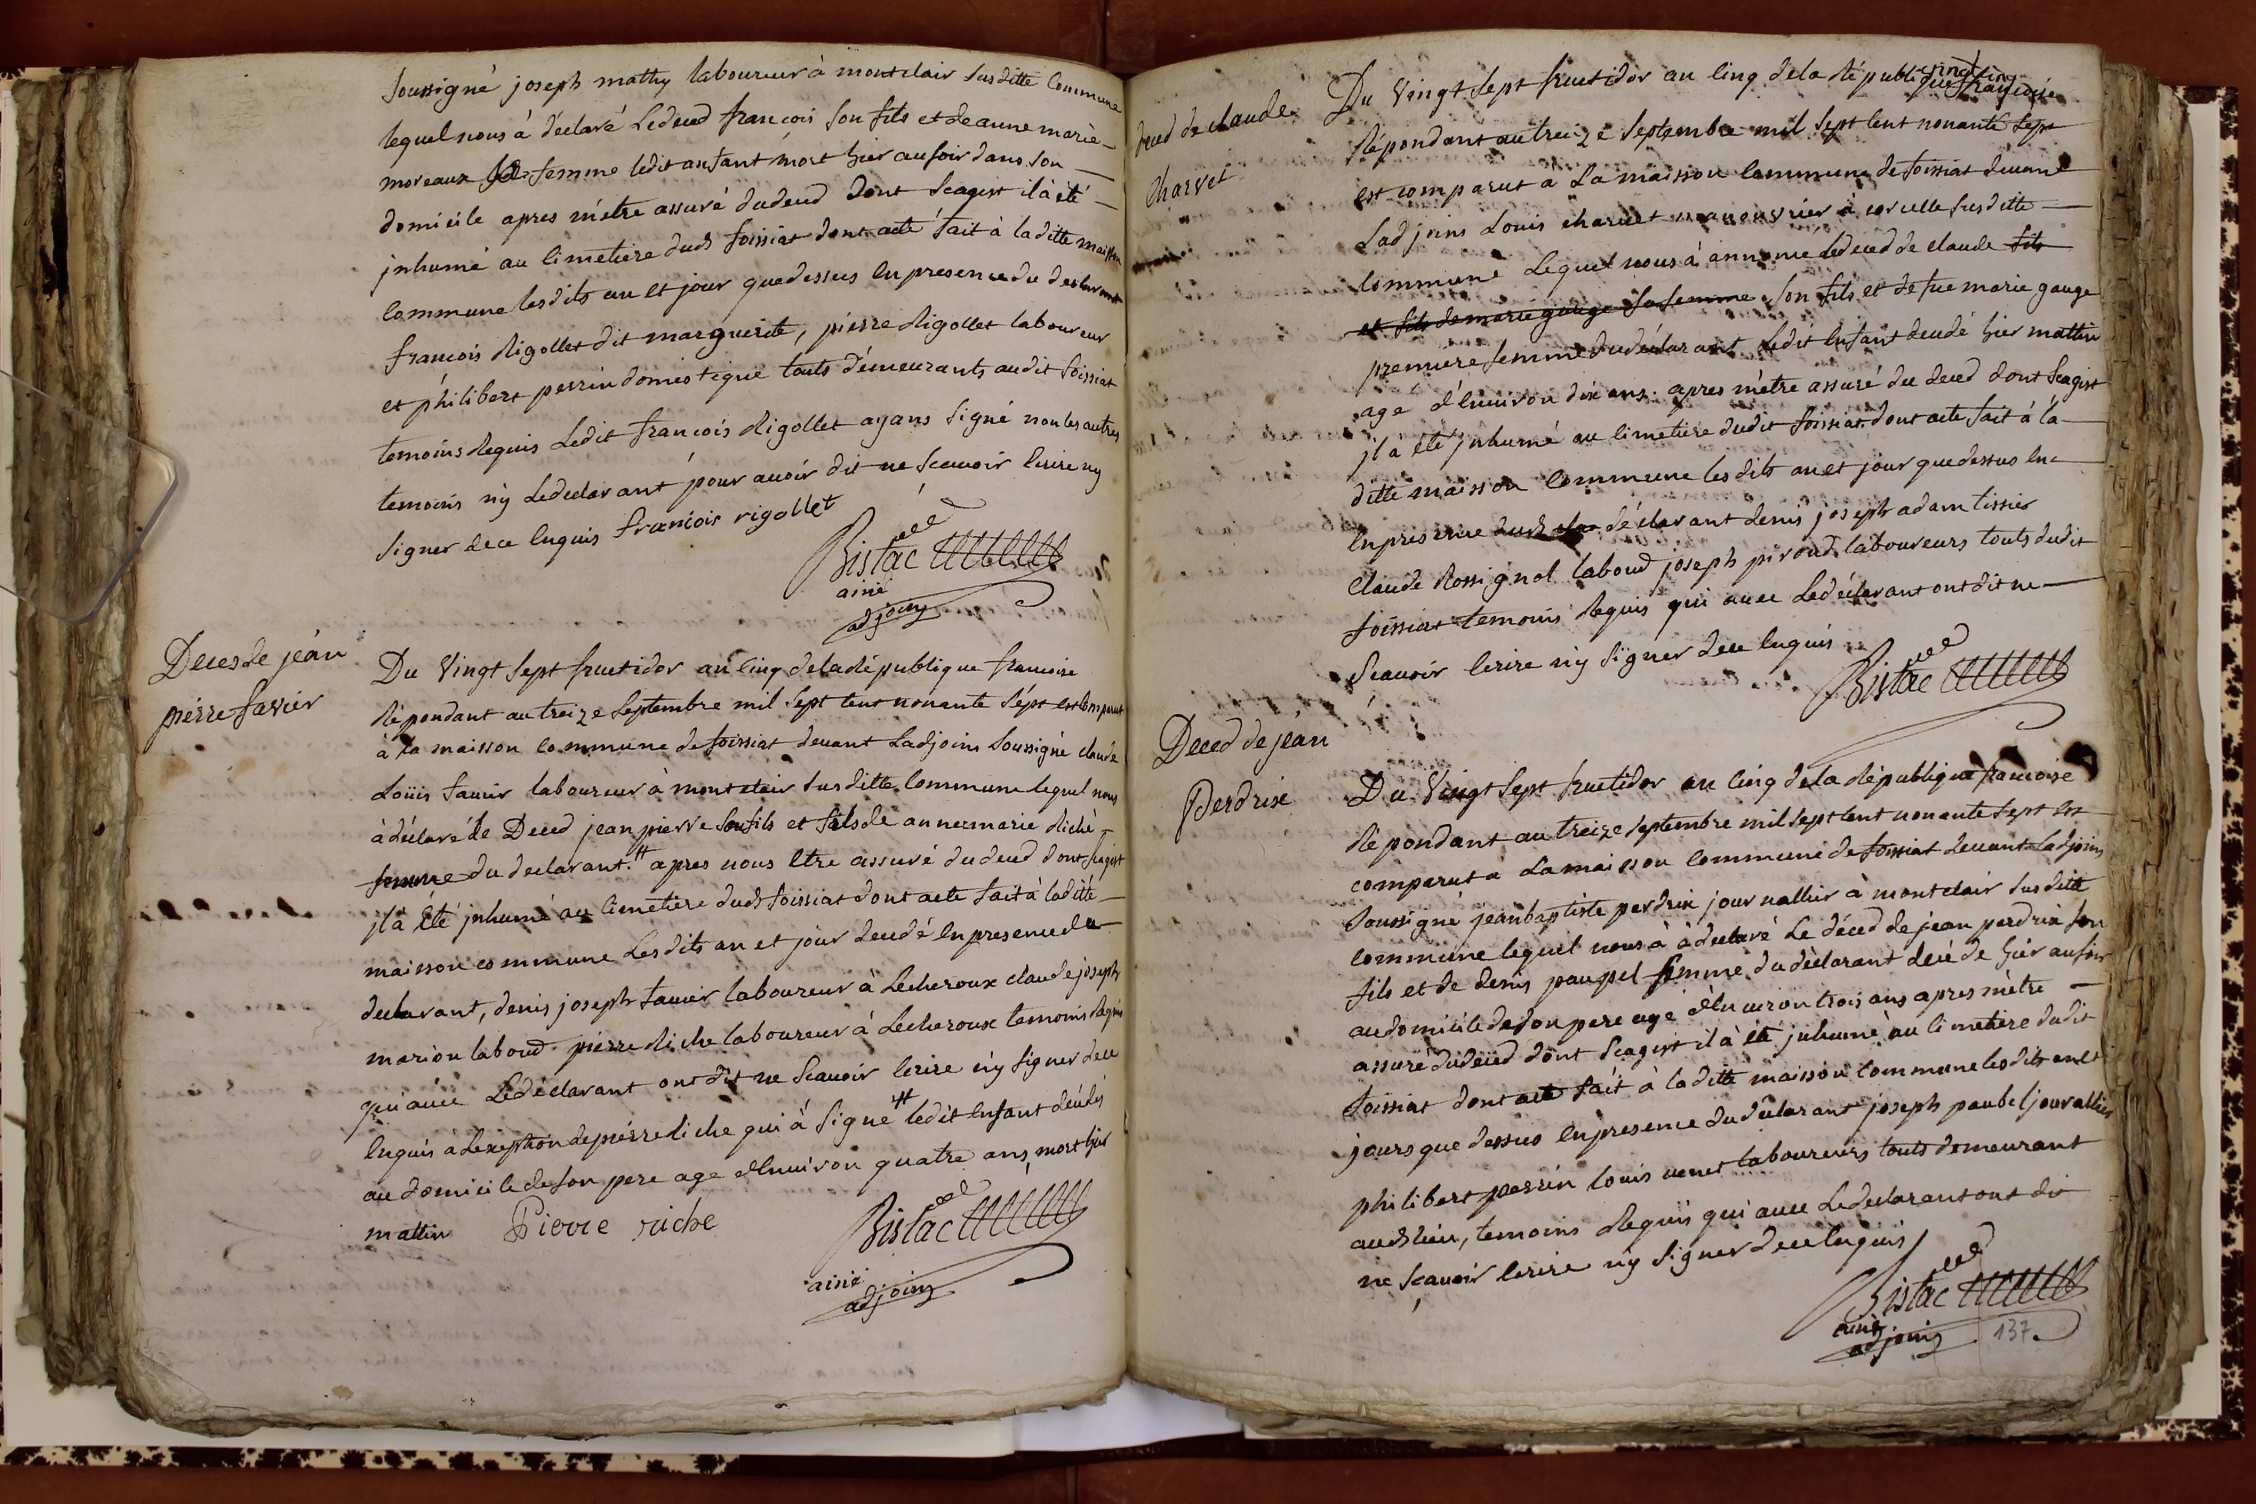 soussigné joseph mathy laboureur à montclair susditte Commune
lequel nous à déclaré Ledeced francois son fils et de anne marie
moreaux sa femme ledit anfant mort hier au soir dans son
domicile apres m'etre assuré dudeced dont Seagist il à été
jnhumé au Cimetiere dud foissiat dont acte fait à laditte maisson
Commune lesdits an et jour quedessus En presence du declarant
francois Rigollet dit marguerite, pierre Rigollet laboureur
et philibert perrin domestique touts démeurants audit foissiat
temoins Requis Ledit francois Rigollet ayans signé non les autres
temoins n'y Ledeclarant pour avoir dit ne scavoir Ecrire ny
signer dece Enquis francois rigollet
Bistac
ainé
adjoint
Deces de jean
pierre favier
Du Vingt sept fructidor an Cinq dela République francoise
Répondant au treize septembre mil sept Cent nonante sépt est Comparut
à la maisson Commune de foissiat devant Ladjoint soussigné claude
Loüis favier laboureur à montclair susditte Commune lequel nous
à déclaré le Deced jean pierre son fils et fils de anne marie Riche
femme du declarant # apres nous Etre assuré du deced dont seagist
jl à Eté jnhumé au Cimetiere dud foissiat dont acte fait à laditte
maisson commune Lesdits an et jour decedé En presence du
declarant, denis joseph favier laboureur à Lecheroux claude joseph
marion laboud pierre Riche laboureur à Lecheroux temoins Requis
qui avec Ledéclarant ont dit ne Scavoir Ecrire n'y signer dece
Enquis a Lexeption de pierre Riche qui à signé # ledit Enfant décédés
au domicile de son pere age dEnviron quatre ans, mort hier
mattin Pierre riche
Bistac
ainé
adjoint
deced de claude
charvet
Du Vingt sept fructidor an Cinq dela République françoise
Répondant au treize septembre mil sept Cent nonante sept
est comparut à La maisson Commune de foissiat devant
Ladjoins Louis charvet manouvrier à corcelle susditte
Commune Lequel nous à annoncé ledeced de claude fils
et fils de marie gauge sa femme son fils et de fue marie gauge
premiere femme dudéclarant Ledit Enfant decedé hier mattin
age d'Environ dix ans. apres m'etre assuré du deced dont seagist
jl à été jnhumé au Cimetiere dudit foissiat dont acte fait à la
ditte maisson Commune lesdits an et jour quedessus En
En presence dud déclarant denis joseph adam tissier
Claude Rossignol laboud joseph piroud laboureurs touts dudit
foissiat temoins Requis qui avec Ledéclarant ont dit ne
Scavoir Ecrire n'y signer dece Enquis
Bistac
Deced de jean
Perdrix
Du Vingt sept fructidor an Cinq de la République françoise
Répondant au treize septembre mil sept Cent nonante sept est
comparut a La maisson Commune de foissiat devant Ladjoins
soussigné jean baptiste perdrix journallier à montclair susditte
Commune lequel nous à à declaré Le déced de jean perdrix son
fils et de denis paupel femme du déclarant décédé hier au soir
au domicile de son pere agé dEnviron trois ans apres m'etre
assuré dudeced dont seagist il à été jnhumé au Cimetiere dudit
foissiat dont acte fait à laditte maisson Commune lesdits an et
jours que dessus En presence dudéclarant joseph paubel journallier
philibert perrin louis venet laboureurs touts demeurant
aud lieu, temoins Requis qui avec Ledeclarant ont dit
ne Scavoir Ecrire n'y signer dece Enquis
Bistac
ainé
adjoint 137